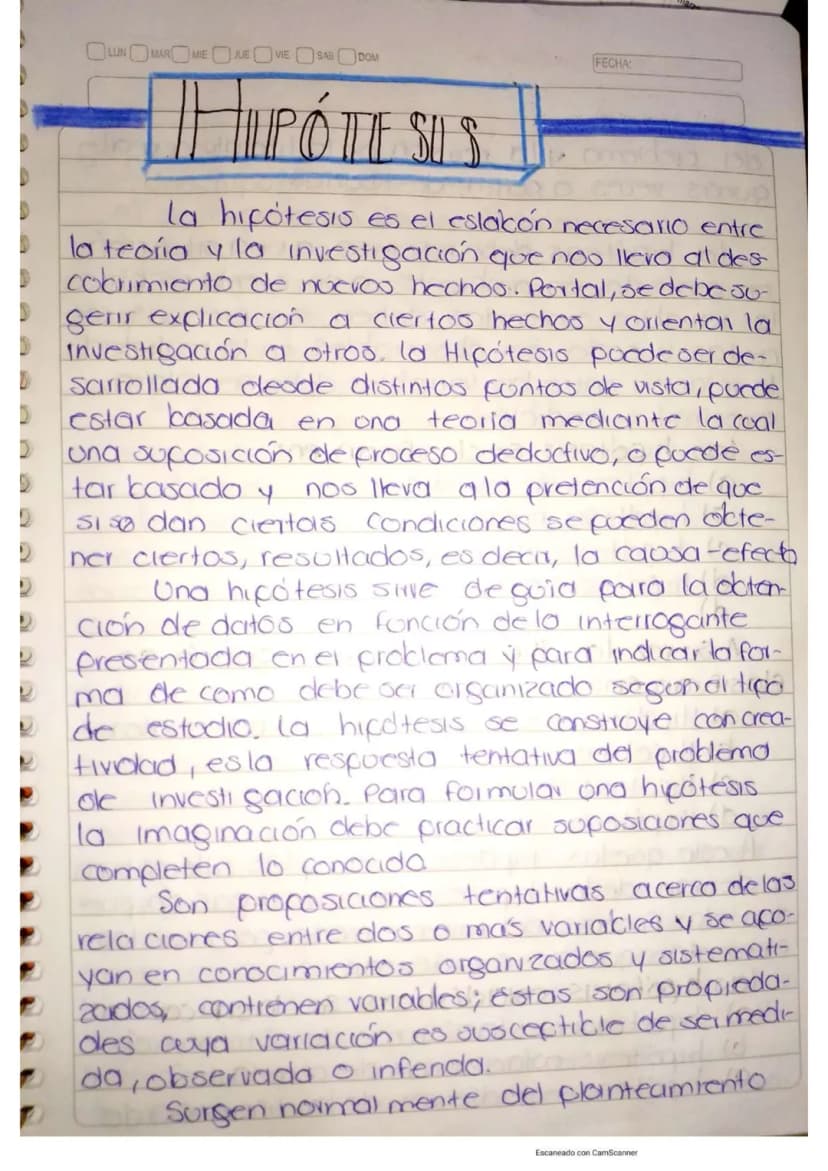 LUN MAR MIE JUE VIE SAB DOM
FECHA:
HIPÓTESIS
La hipótesis es el eslabón necesario entre
la teoría y la investigación que nos lleva al des
cobrimiento de nuevos hechos. Portal, se debe su-
gerir explicación a ciertos hechos y orientar la
investigación a otros. la Hipótesis puede ser de-
sarrollada desde distintos puntos de vista, puede
estar basada en una teoría mediante la cual
una suposición de proceso deductivo, o puede es-
tar basado y nos lleva a la pretención de que
si se dan ciertas condiciones se pueden obte-
ner ciertos, resultados, es decir, la causa-efecto
Una hipótesis sirve de guia para la obten-
ción de datos en función de la interrogante
presentada en el problema y para indicar la for-
ma de como debe ser organizado segun el tipo
de estudio. la hipótesis se construye con crea-
tividad, es la respuesta tentativa del problema
de investigación. Para formular una hipótesis
la imaginación debe practicar suposiciones que
completen lo conocido
Son proposiciones tentativas acerca de las
relaciones entre dos o más variables y se apo-
yan en conocimientos organizados y sistemati-
zados, contienen variables; éstas son propieda-
des cuya variación es susceptible de ser medi-
da, observada o inferida.
Surgen normalmente del planteamiento
Escaneado con CamScanner